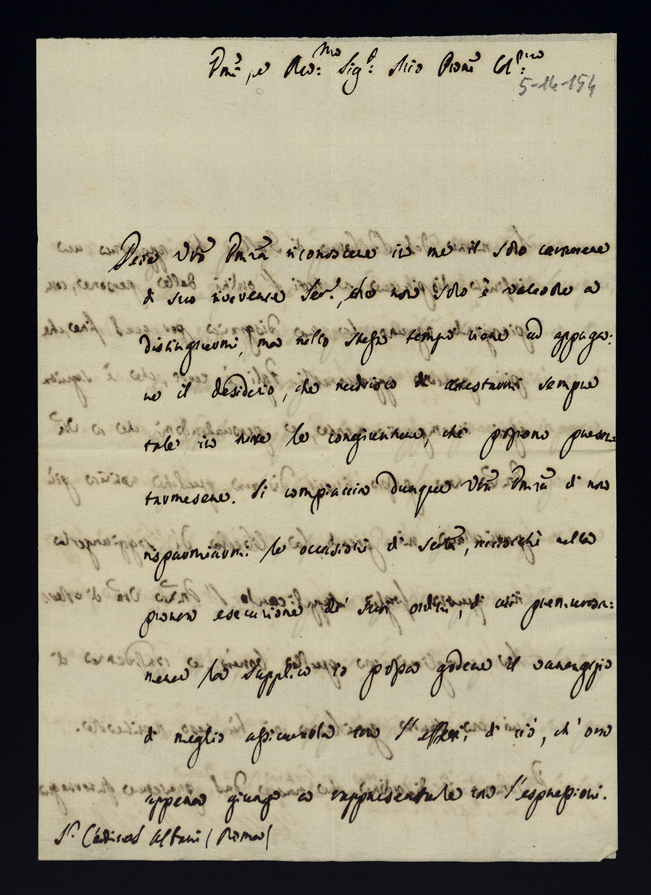 Emĩ, e Reu:mo Sig.r Mio Pronẽ Col:mo
5-14-154
Deve Vrã Emzã riconoscere in me il solo carattere
di suo riverente Ser.re, che non solo è valevole a
distinguermi, ma nello stesso tempo viene ad appaga:
re il desiderio, che nudrisco di attestarmi sempre
tale in tutte le congiunture, che possono presen
tarmesene. Si compiaccia dunque Vrã Emzã di non
risparmiarmi le occasioni di seruirla, acciocchè nella
pronta esecuzione de' suoi ordini, di cui premurosa:
mente la supplico io possa godere il vantaggio
di meglio assicurarla con l'effetti, di ciò, ch' ora
appena giungo a rappresentarle con l'espressioni.
S.r Cardinal Albani (Roma)